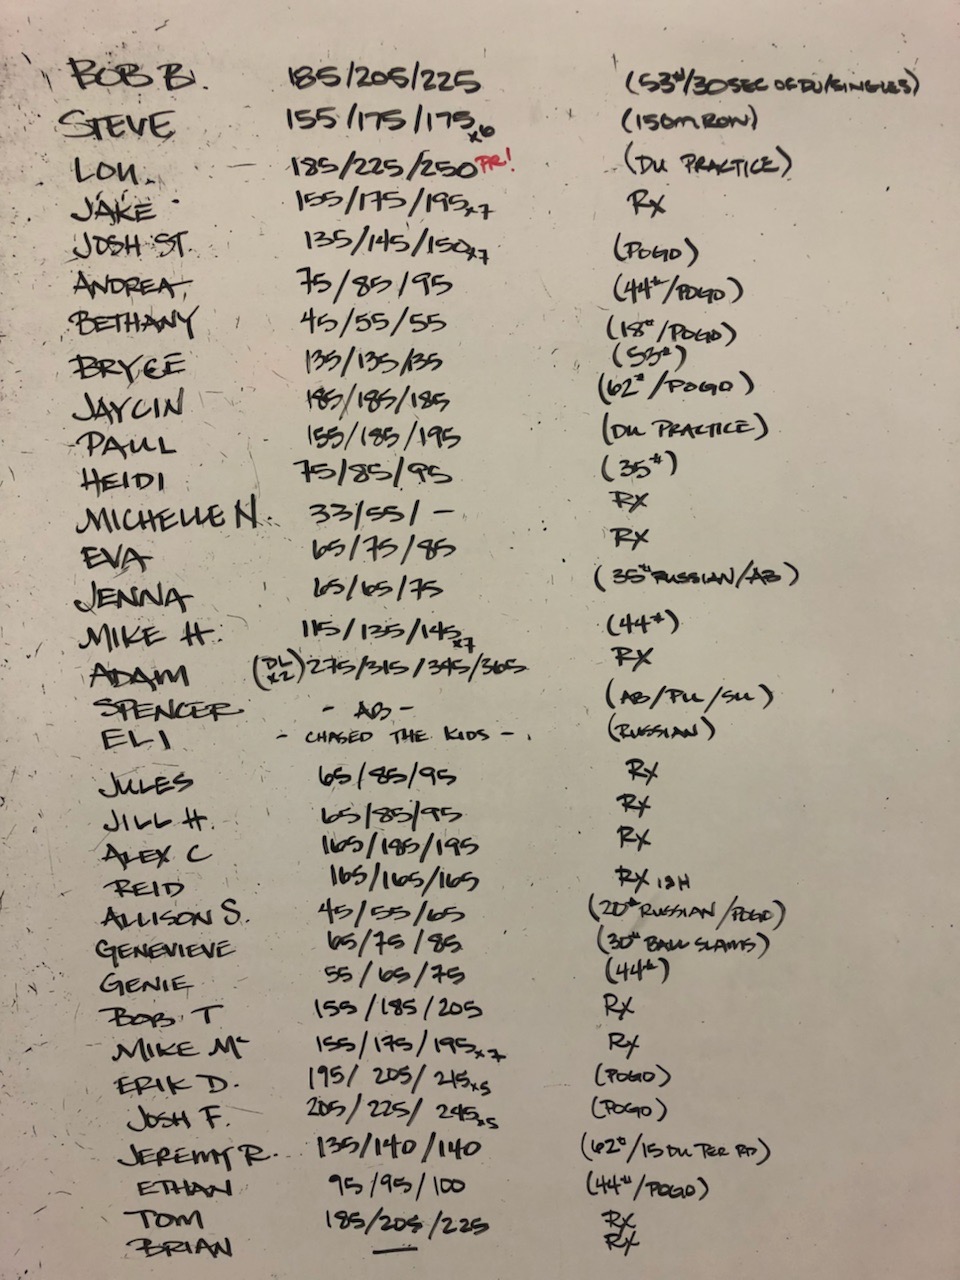 BOB B. 185/205/225 (53#/30SEC OF DU/SINGLES)
STEVE 155/175/175x6 (150m ROW)
LOU. 185/225/250 PR! (DU PRACTICE)
JAKE 155/175/195x7 Rx
JOSH ST. 135/145/150x7 (POGO)
ANDREA 75/85/95 (44#/POGO)
BETHANY 45/55/55 (18#/POGO)
BRYCE 135/135/135 (53#)
JAYCIN 185/185/185 (62#/POGO)
PAUL 155/185/195 (DU PRACTICE)
HEIDI 75/85/95 (35#)
MICHELLE N. 33/55/- RX
EVA 65/75/85 RX
JENNA 65/65/75 (35# RUSSIAN/AB)
MIKE H. 115/135/145x7 (44#)
ADAM (DL x2) 275/315/345/365 RX
SPENCER - AB - (AB/PU/SU)
ELI - CHASED THE KIDS - (RUSSIAN)
JULES 65/85/95 RX
JILL H. 65/85/95 RX
ALEX C 165/185/195 RX
REID 165/165/165 RX
ALLISON S. 45/55/65 (20# RUSSIAN/POGO)
GENEVIEVE 65/75/85 (30# BALL SLAMS)
GENIE 55/65/75 (44#)
BOB T 155/185/205 RX
MIKE Mc 155/175/195x7 RX
ERIK D. 195/205/215x5 (POGO)
JOSH F. 205/225/245x5 (POGO)
JEREMY R. 135/140/140 (62#/15 DU PER RD)
ETHAN 95/95/100 (44#/POGO)
TOM 185/205/225 RX
BRIAN — RX